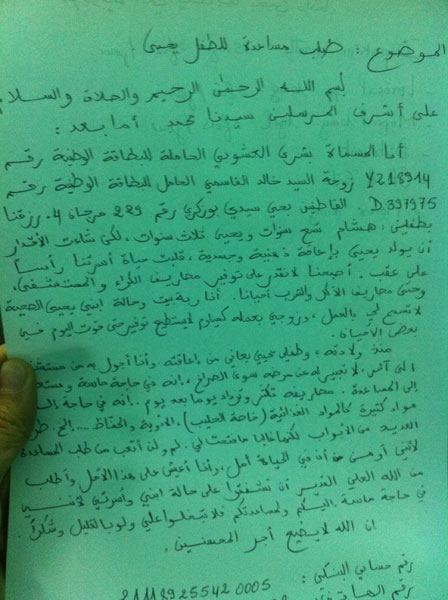 الموضوع : طلب مساعدة للطفل يحيى
بسم الله الرحمان الرحيم والصلاة والسلا
على أشرف المرسلين سيدنا محمد أما بعد :
أنا المسماة بشرى العشوبي الحاملة للبطاقة الوطنية رقم
Y218914 زوجة السيد خالد القاسمي الحامل للبطاقة الوطنية رقم
D397975. القاطنين بحي سيدي بوزكري رقم 229 مرجان 4. رزقنا
بطفلين: هشام تسع سنوات ويحيى ثلاث سنوات، لكن شاءت الأقدار
أن يولد يحيى بإعاقة ذهنية وجسدية، قلبت حياة أسرتنا رأسا
على عقب. أصبحنا لا نقدر على توفير مصاريف الكراء و المستشفى،
وحتى مصاريف الأكل والشرب أحيانا. أنا ربة بيت وحالة ابني يحيى الصحية
لا تسمح لي بالعمل، وزوجي بعمله كمياوم لا يستطيع توفير حتى قوت اليوم في
بعض الأحيان.
منذ ولادته، وطفلي يحيى يعاني من إعاقته وأنا أجول به من مستشفى
إلى آخر. لا تعبير له عن مرضه سوى الصراخ، إنه في حاجة ماسة
إلى المساعدة. مصاريفه تكثر وتزداد يوما بعد يوم. إنه في حاجة
مواد كثيرة كالمواد الغذائية (خاصة الحليب)، الأدوية والحفاظ .... إلخ.
العديد من الأبواب لكنها غالبا ما فتحت لي. لم ولن أتعب من طلب المساعدة
لأنني أومن من أن في الحياة أمل، وأنا أعيش على هذا الأمل وأطلب
من الله العلي القدير أن تشفقوا على حالة ابني وأسرتي لأنني
في حاجة ماسة إليكم ولمساعدتكم فلا تبخلوا علي ولو بالقليل وشكرا.
ان الله لا يضيع أجر المحسنين.
رقم حسابي البنكي :
21118925542 0005
رقم الهاتف